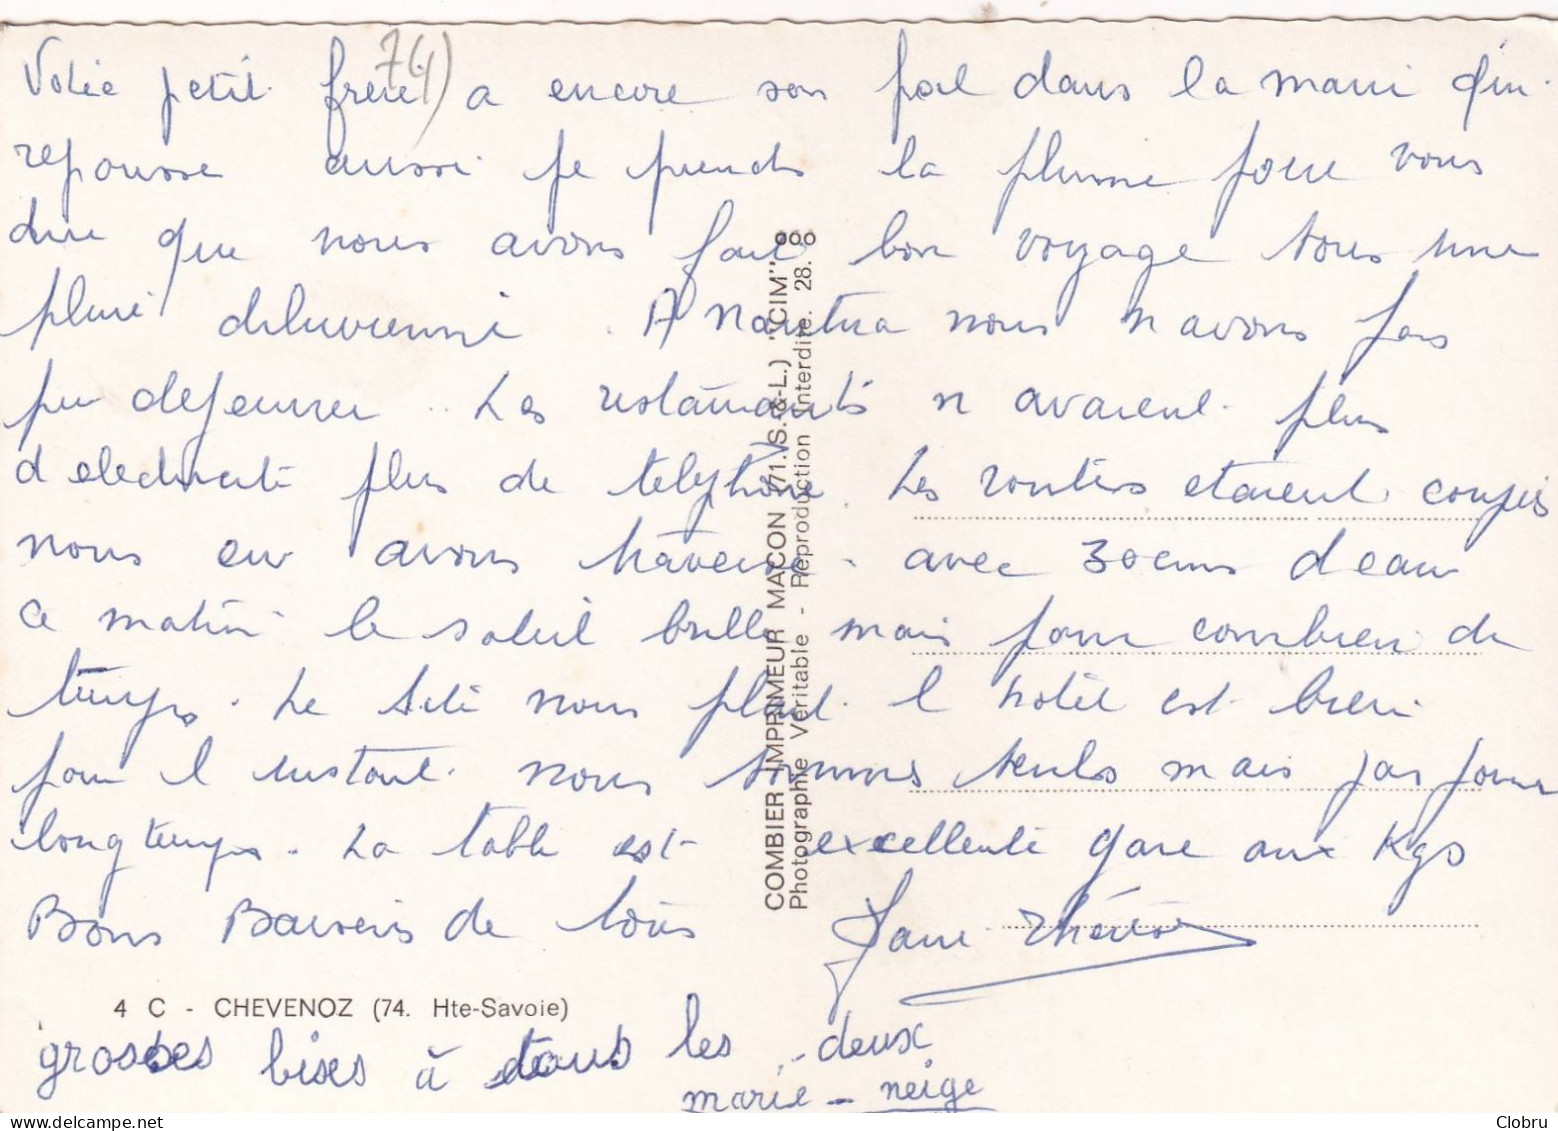 Votre petit frere a encore son poil dans la main qui
repousse aussi je prends la plume pour vous
dire que nous avons fait bon voyage sous une
pluie diluvienne. A Nantua nous n avons pas
pu dejeuner.. Les restaurants n avaient plus
d electricité plus de telephone. Les routes etaient coupés
nous en avons traversé. avec 30 cms d eau
ce matin le soleil brille mais pour combien de
temps. Le site nous plait. l hotel est bien
pour l instant. nous sommes seuls mais pas pour
longtemps. La table est excellente gare aux Kgs
Bons Baisers de tous
74)
4 C - CHEVENOZ (74. Hte-Savoie)
grosses bises à tous les deux
marie - neige
COMBIER IMPRIMEUR MACON (71.S.-&-L.) "CIM"
Photographie Véritable - Reproduction Interdite. 28.
Clobru